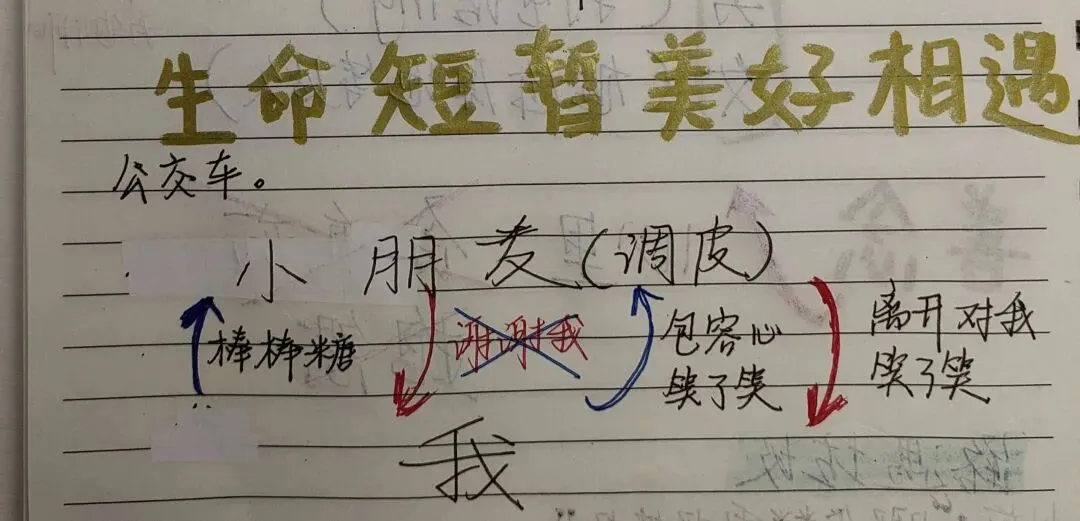 生命短暂美好相遇
公交车。
小朋友(调皮)
棒棒糖
谢谢我
包容心
笑了笑
离开对我
笑了笑
我